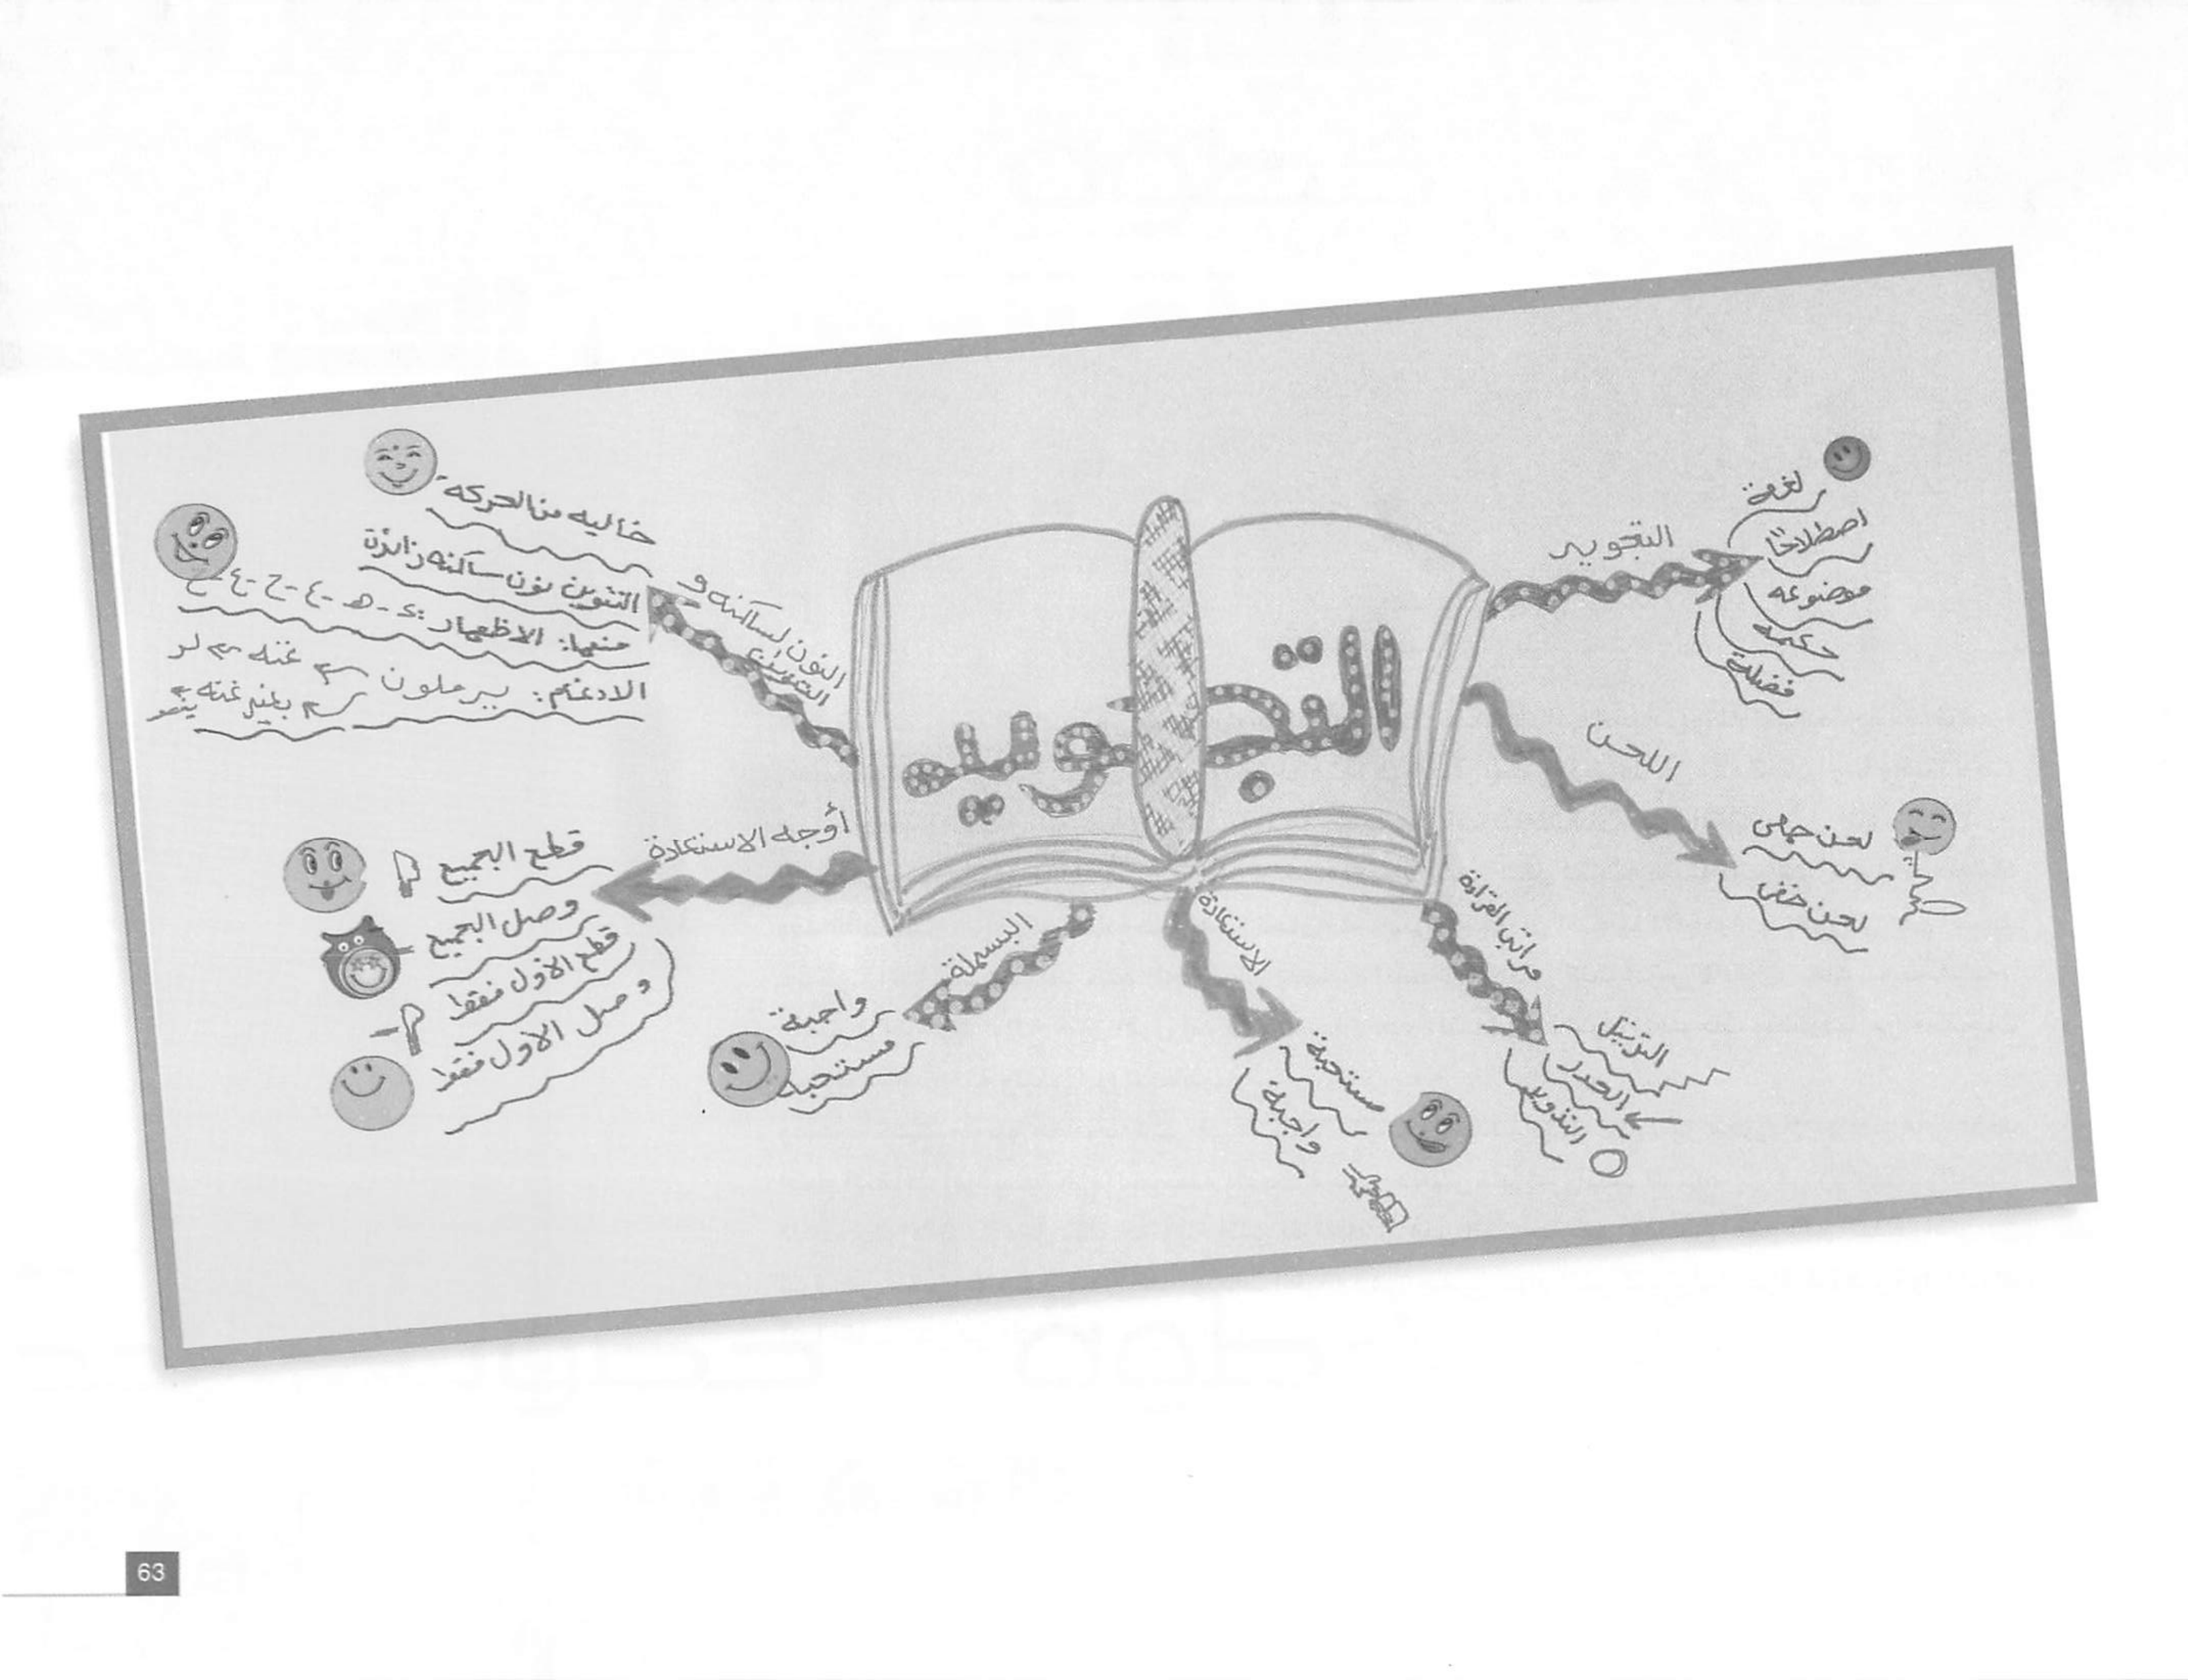 التجويد
التجويد
لغة
اصطلاحًا
موضوعه
حكمه
فضله
اللحن
لحن جلي
لحن خفي
مراتب القراءة
الترتيل
الحدر
التدوير
الاستعاذة
مستحبة
واجبة
البسملة
واجبة
مستحبة
أوجه الاستعاذة
قطع الجميع
وصل الجميع
قطع الأول فقط
وصل الاول فقط
النون لساكنه و
التنوين
خاليه من الحركة
التنوين نون ساكنه زائدة
منها: الاظهار :ء - هـ - ع - ح - غ - خ
الادغام: يرملون
غنه
بغير غنه
63